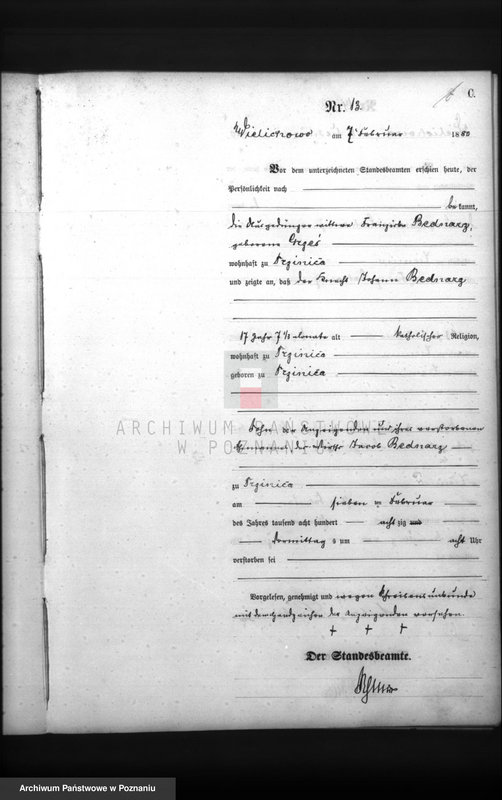 C.
Nr. 13.
Wielichowo am 7 Februar 1880
Vor dem unterzeichneten Standesbeamten erschien heute, der
Persönlichkeit nach
bekannt,
die Ausgedingerwittwe Franziska Bednarz,
geborene
wohnhaft zu
und zeigte an, daß der Knecht Johann Bednarz
17 Jahr 7 1/2 Monate alt katholischer Religion,
wohnhaft zu
geboren zu
ARCHIWUM PAŃSTWOWE
W POZNANIU
Sohn der Anzeigenden und ihres verstorbenen
Ehemannes des Wirths Jacob Bednarz
zu
am sieben ten Februar
des Jahres tausend acht hundert acht zig und
Vormittag s um acht Uhr
verstorben sei
Vorgelesen, genehmigt und wegen Schreibensunkunde
mit Handzeichen der Anzeigenden versehen.
+ + +
Der Standesbeamte.
Archiwum Państwowe w Poznaniu